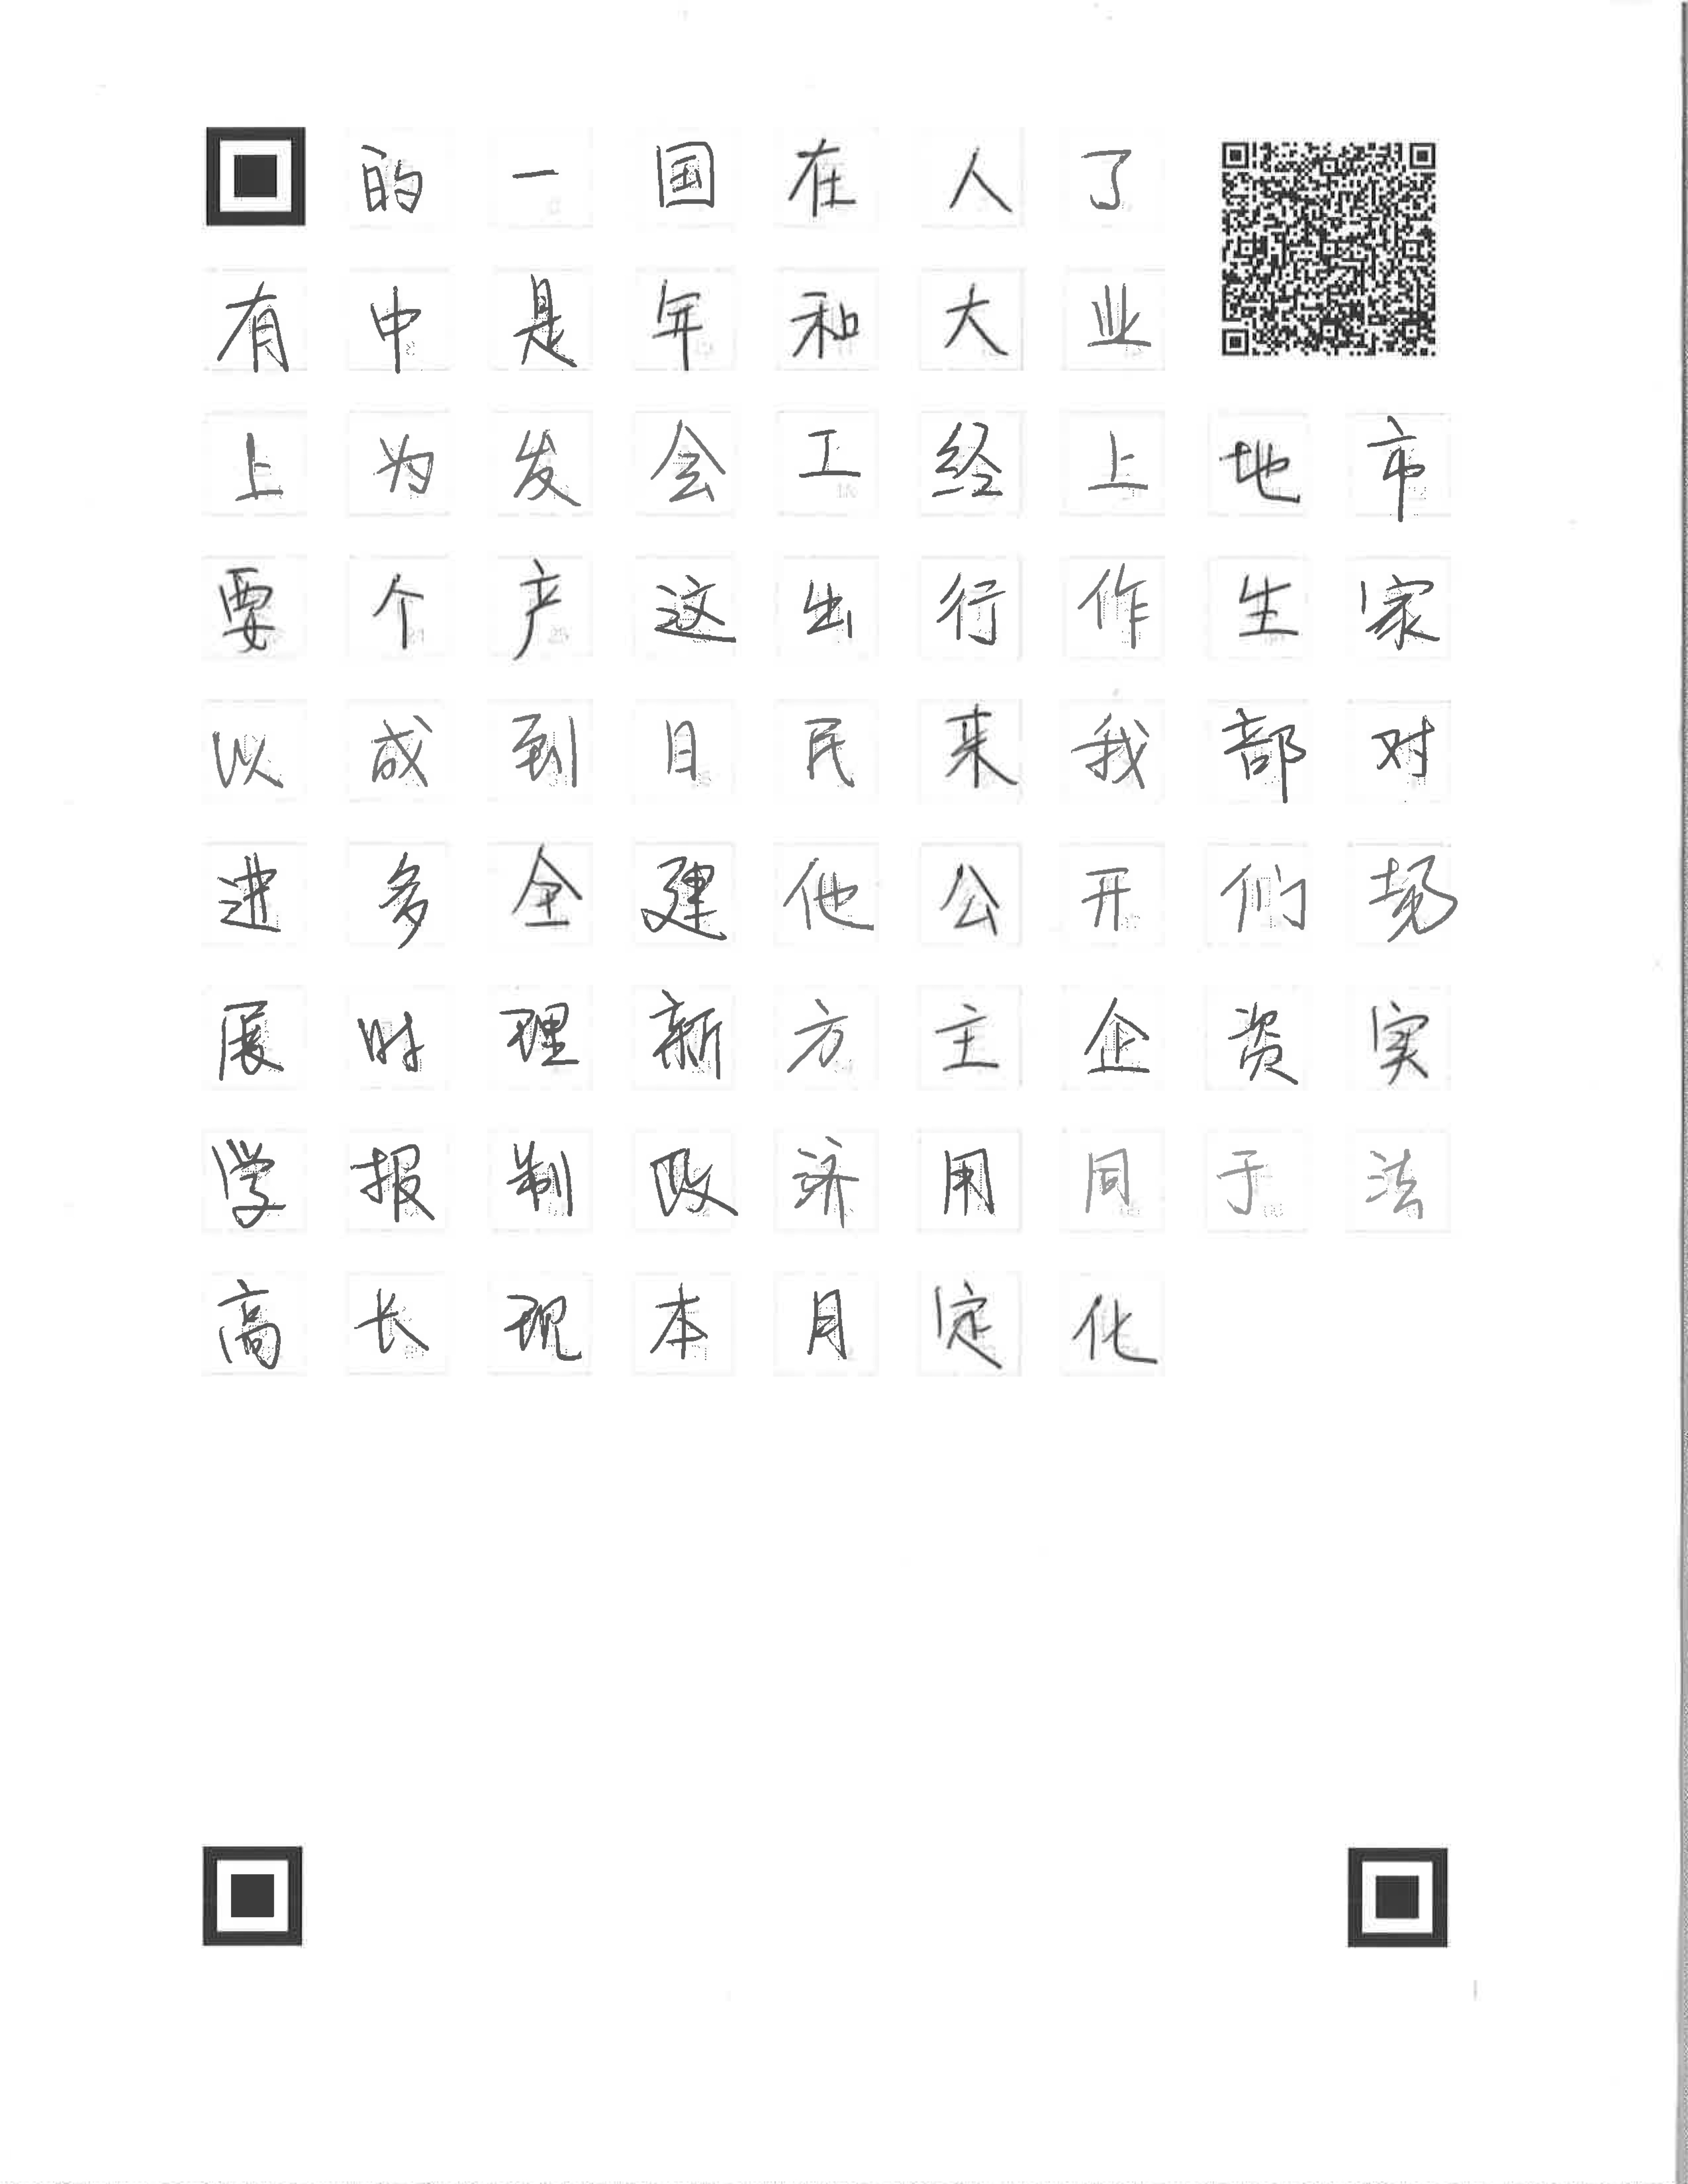 的一国在人了
有中是年和大业
上为发会工经上地市
要个产这出行作生家
以成到日民来我部对
进多全建他公开们场
展时理新方主企资实
学报制政济用同于法
高长现本月定化